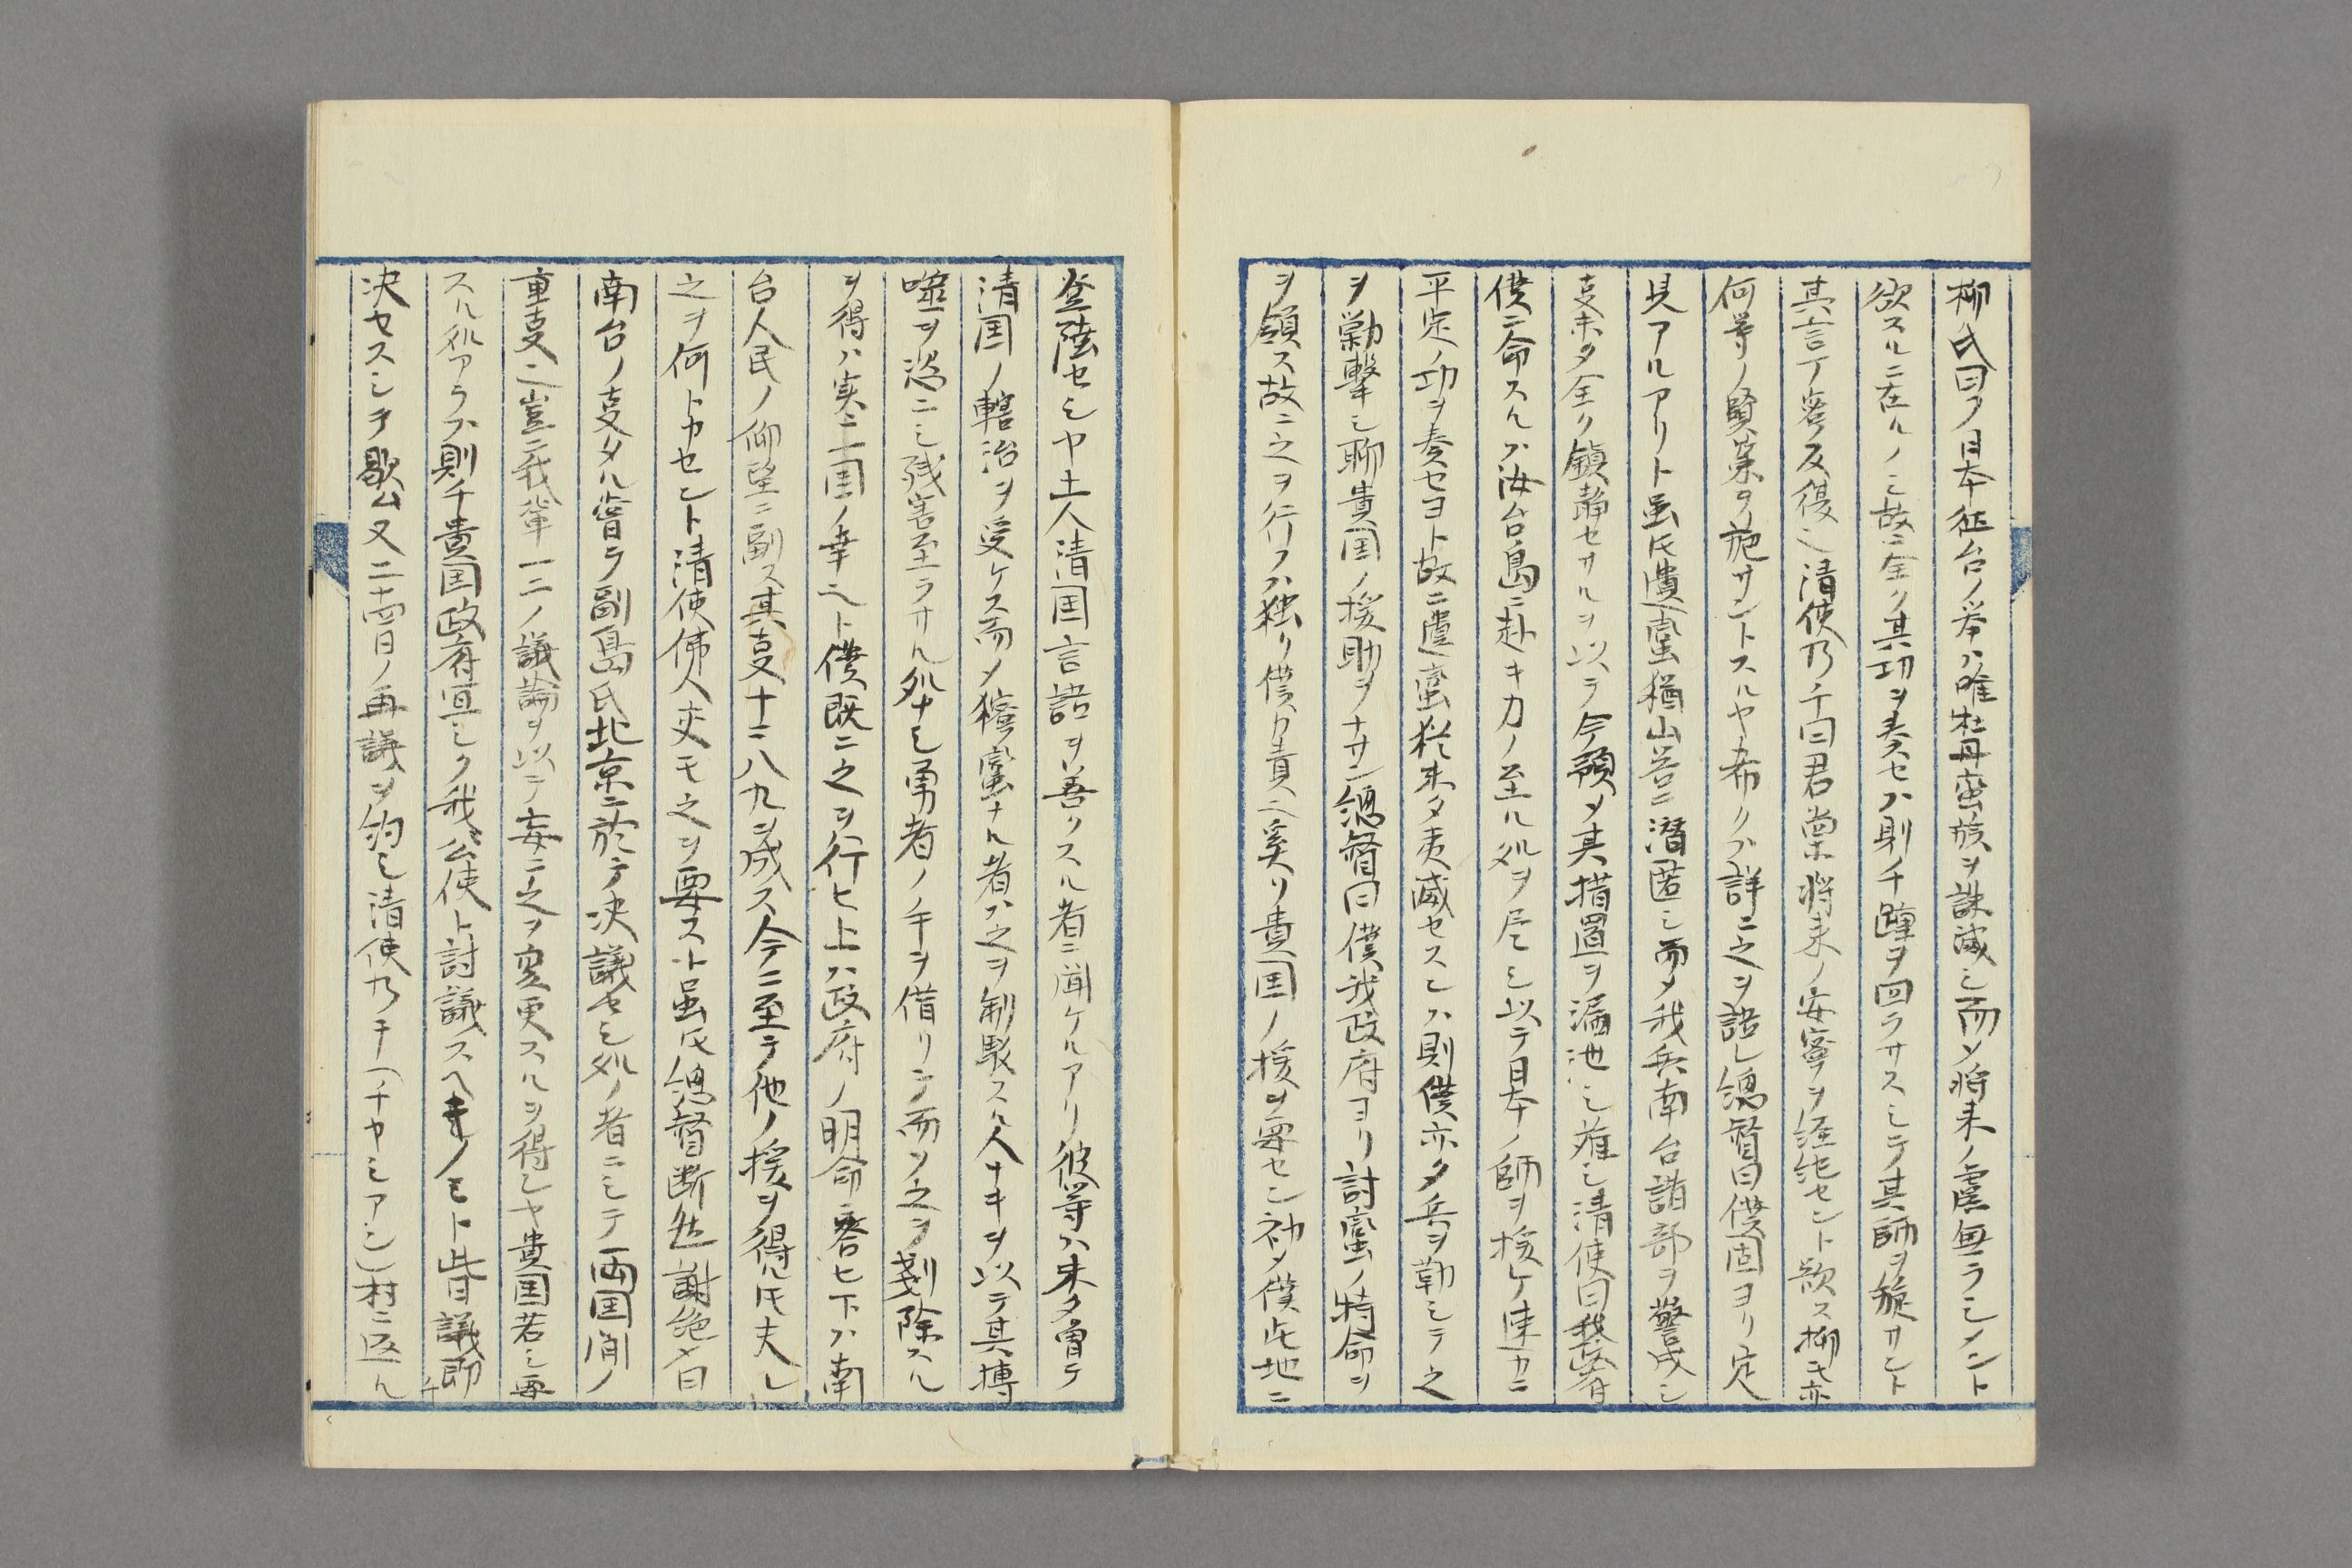 柳氏曰ク日本征台ノ挙ハ唯牡丹蛮族ヲ誅滅シ而ソ将来ノ虞無ラシメント
欲スルニ在ルノミ故ニ全ク其功ヲ奏セハ則チ踵ヲ回ラサスシテ其師ヲ旋サント
其言丁寧反復ス清使乃チ曰君嘗ホ将来ノ安寧ヲ経紀セント欲ス柳氏亦
何等ノ賢策ヲ施サントスルヤ希クハ詳ニ之ヲ語レ総督曰僕固ヨリ定
見アルアリト虽氏遺蛮猶山谷ニ潜匿シ而メ我兵南台諸部ヲ警戒シ
支未タ全ク鎮静セサルヲ以テ今預メ其措置ヲ漏泄シ难シ清使曰我政府
僕ニ命スルハ汝台島ニ赴キ力ノ至ル処ヲ尽シ以テ日本ノ師ヲ援ケ速カニ
平定ノ功ヲ奏セヨト故ニ遺蛮猶未タ夷滅セスンハ則僕亦タ兵ヲ勒シテ之
ヲ勦撃シ聊貴国ノ援助ヲナサン総督曰僕我政府ヨリ討蛮ノ特命ヲ
ヲ領ス故ニ之ヲ行フハ独リ僕カ責ニ奚リ貴国ノ援ヲ要セン初メ僕此地ニ
登陸セシヤ土人清国言語ヲ善クスル者ニ聞ケルアリ彼等ハ未タ曽テ
清国ノ轄治ヲ受ケス而メ獰蛮ナル者ハ之ヲ制馭スル人ナキヲ以テ其搏
噬ヲ恣ニシ残害至ラサル処ナシ勇者ノ手ヲ借リテ而ソ之ヲ剗除スル
ヲ得ハ実ニ二国ノ幸ニト僕既ニ之ヲ行ヒ上ハ政府ノ明命ニ答ヒ下ハ南
台人民ノ仰望ニ副ス其支十ニ八九ヲ成ス今ニ至テ他ノ援ヲ得ル氏夫レ
之ヲ何トカセント清使佛人夹モ之ヲ要スト虽氏総督断然謝絶メ曰
南台ノ支タル嘗テ副島氏北京ニ於テ決議セシ処ノ者ニシテ両国間ノ
重支ニ豈ニ我輩一二ノ議論ヲ以テ妄ニ之ヲ変更スルヲ得ンヤ貴国若シ要
スル処アラハ則チ貴国政府宜シク我公使ト討議スヘキノミト皆議即
決セスシテ歇ム又二十四日ノ再議ヲ約シ清使乃チ(チヤシアン)村ニ返ル